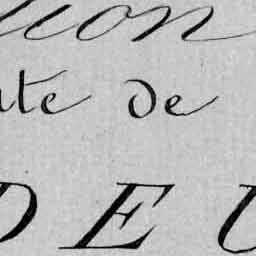 ion
te de
D E U